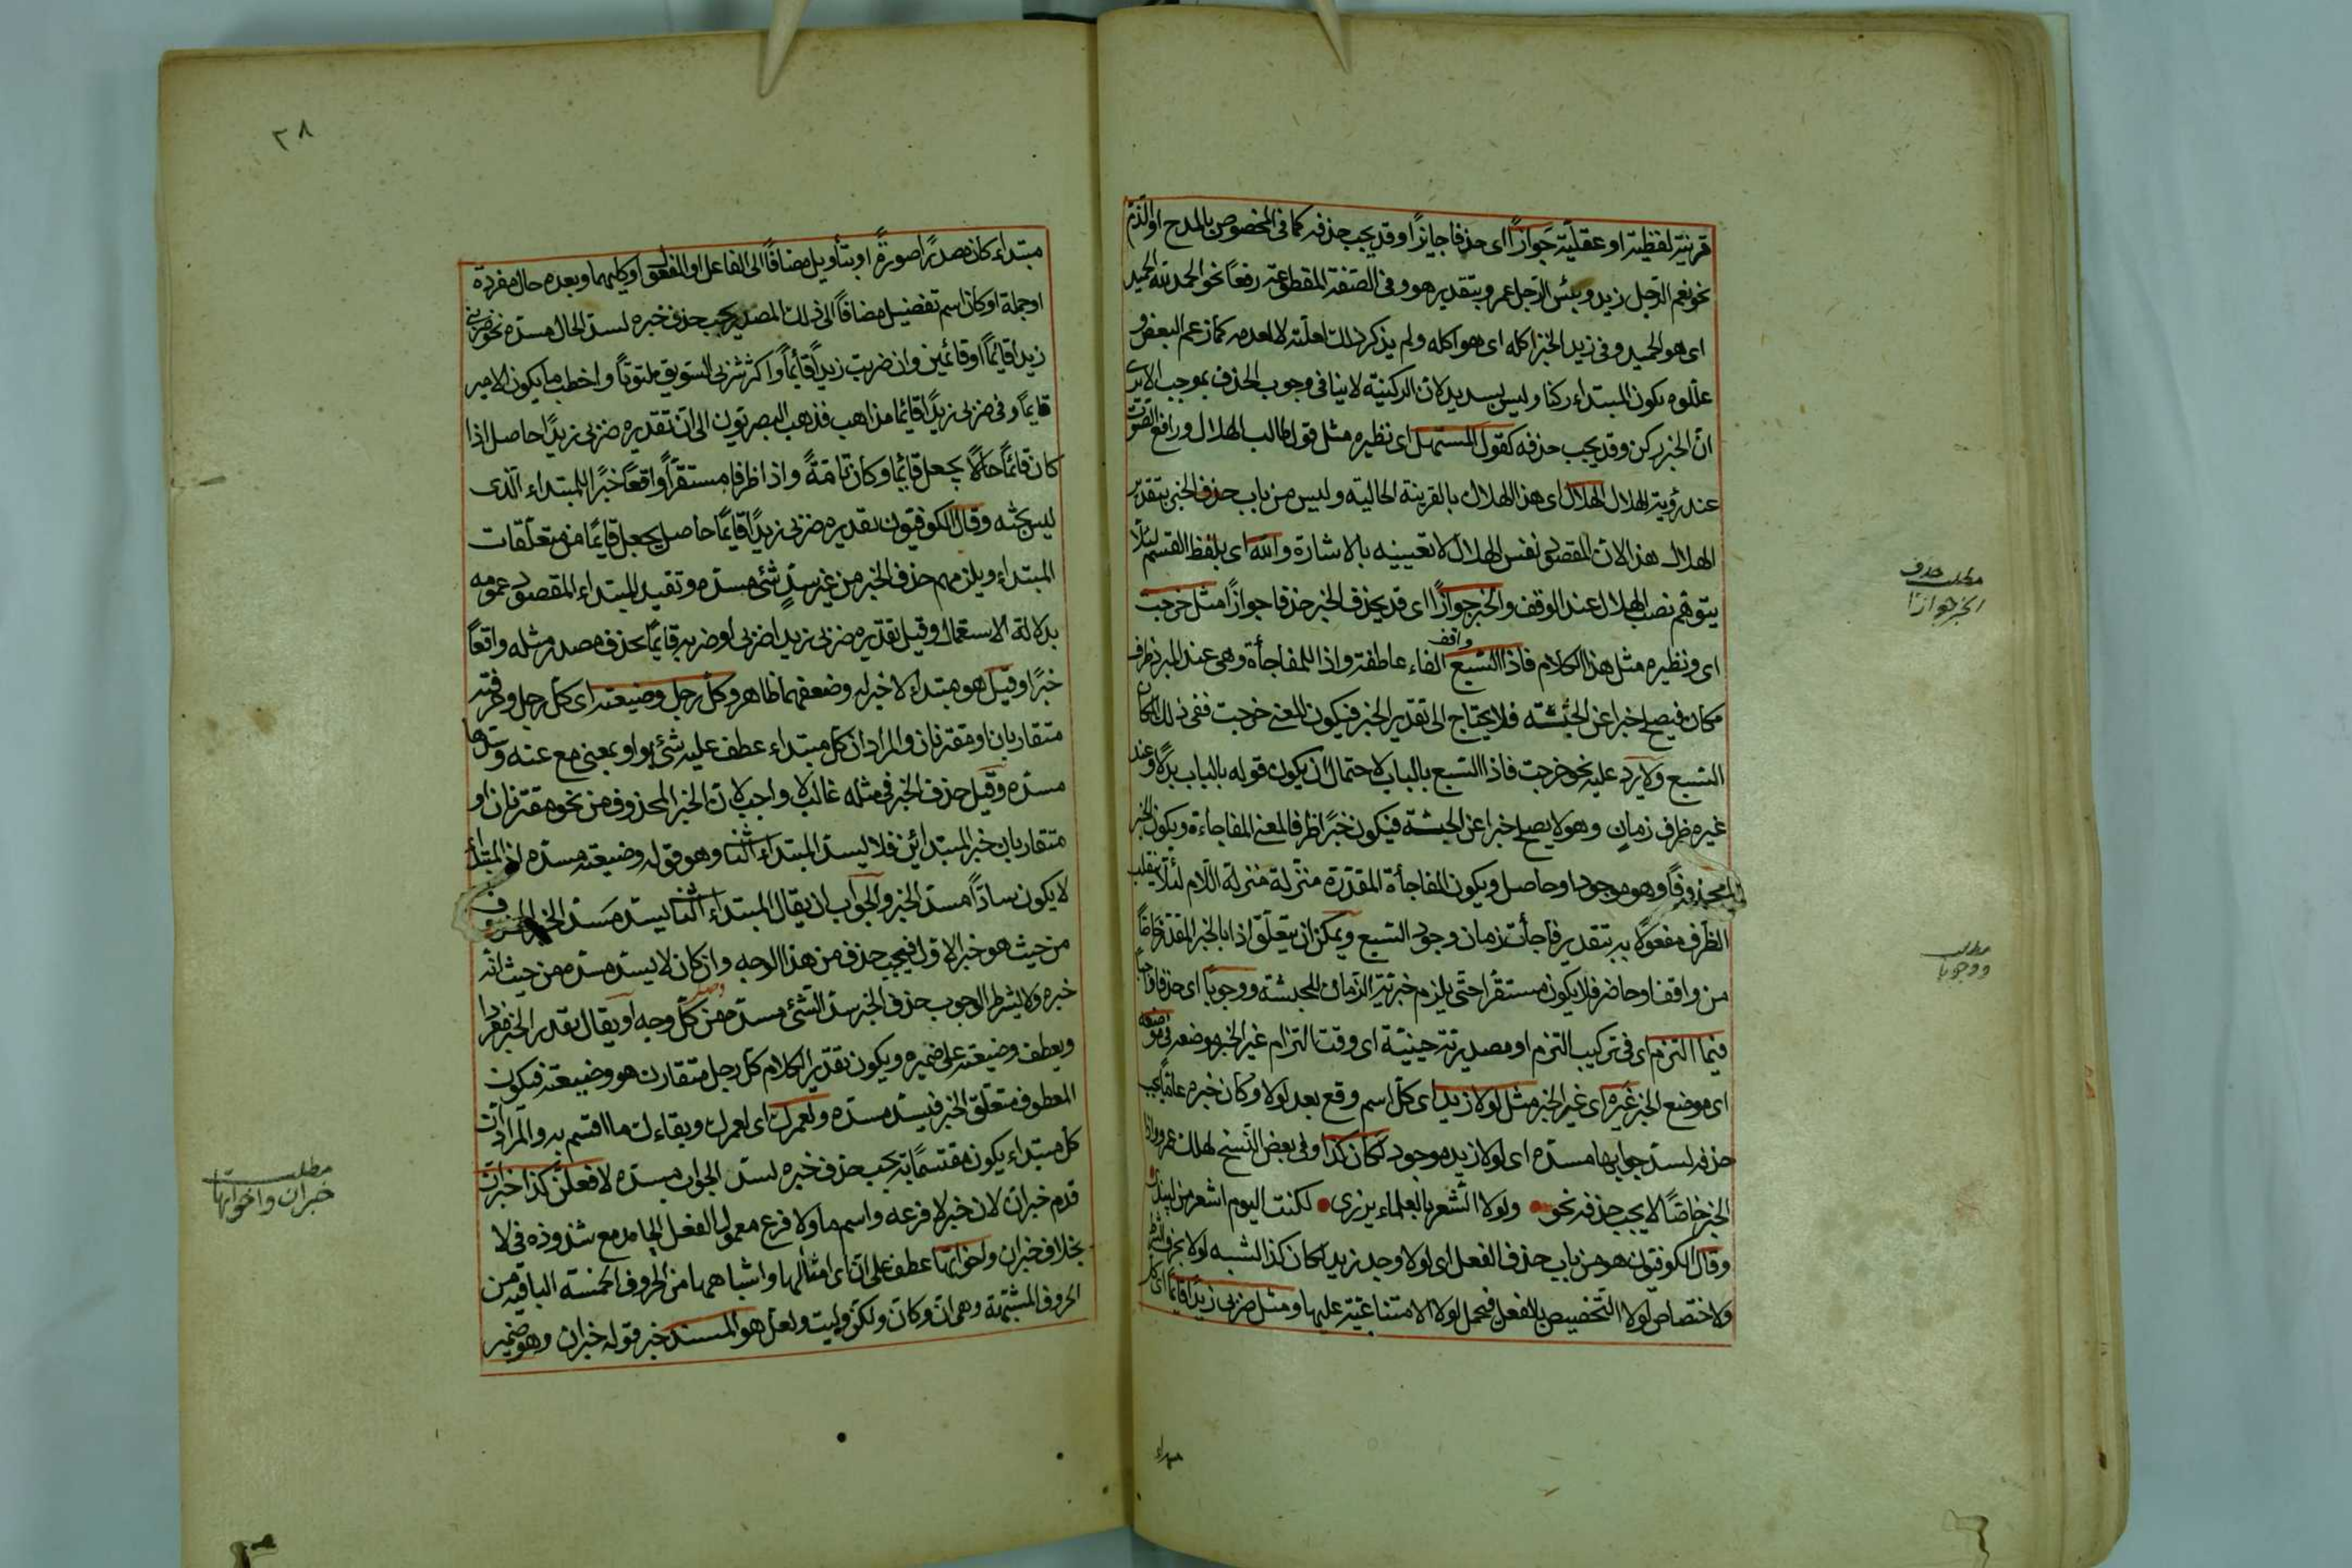 قرنية لفظية او عقلية جوازًا اى حذفا جايزًا وقد يجب حذفه كما فى المخصوص بالمدح او الذم
نحو نعم الرجل زيد وبئس الرجل عمرو بتقدير هو وفى الصفة المقطوعة رفعًا نحو الحمد لله الحميد
اى هو الحميد وفى زيد الخبز اكله اى هو اكله ولم يذكر ذلك لقلته لا لعدمه كما زعم البعض و
عللوه بكون المبتداء ركنا وليس بسديد لان الركنية لا ينافى وجوب الحذف بموجب الا يرى
ان الخبر ركن وقد يجب حذفه كقول المستهل اى نظيره مثل قول طالب الهلال ورافع الصوت
عند رؤية الهلال الهلال اى هذا الهلال بالقرينة الحالية وليس من باب حذف الخبر بتقدير
الهلال هذا لان المقصود نفس الهلال لا تعيينه بالاشارة والله اى بلفظ القسم لئلا
يتوهم نصب الهلال عند الوقف والخبر جوازًا اى قد يحذف الخبر حذفا جوازًا مثل خرجت
اى ونظيره مثل هذا الكلام فاذا السبع واقف الفاء عاطفة واذا للمفاجأة وهى عند المبرد ظرف
مكان فيصلح خبرا عن الجثة فلا يحتاج الى تقدير الخبر فيكون المعنى خرجت ففى ذلك المكان
السبع ولا يرد عليه نحو خرجت فاذا السبع بالباب لاحتمال ان يكون قوله بالباب بدلًا وعند
غيره ظرف زمان وهو لا يصلح خبرا عن الجثة فيكون خبرًا ظرفا لمعنى المفاجاءة ويكون الخبر
محذوفًا وهو موجود او حاصل ويكون المفاجأة المقدرة منزلة منزلة اللام لئلا ينقلب
الظرف مفعولًا به بتقدير فاجأت زمان وجود السبع ويمكن ان يتعلق اذا بالخبر المقدر خاصًا
من واقف او حاضر فلا يكون مستقرا حتى يلزم خبرية الزمان للجثة ووجوبًا اى حذفا واجبًا
فيما التزم اى فى تركيب التزم او مصدرية حينية اى وقت التزام غير الخبر موضعه فى موضعه
اى موضع الخبر غيره اى غير الخبر مثل لولا زيد اى كل اسم وقع بعد لولا وكان خبره عامًا يجب
حذفه لسد جوابها مسده اى لولا زيد موجود لكان كذا وفى بعض النسخ لهلك عمرو واذا
الخبر خاصًا لا يجب حذفه نحو ولولا الشعر بالعلماء يزرى لكنت اليوم اشعر من لبيد
وقال الكوفيون هو من باب حذف الفعل اى لولا وجد زيد لكان كذا لشبه لولا بحرف الشرط
ولاختصاص لولا التحضيض بالفعل فيحمل لولا الامتناعية عليها ومثل ضربى زيدًا قائمًا اى كل
مطلب حذف
الخبر جوازا
مطلب
ووجوبا
مبتداء
٣٨
مبتداء كان مصدرًا صورةً او بتأويل مضافًا الى الفاعل او المفعول او كليهما وبعده حال مفردة
او جملة او كان اسم تفضيل مضافًا الى ذلك المصدر يجب حذف خبره لسد الحال مسده نحو ضربى
زيدا قائمًا او قائمين وان ضربت زيدًا قائمًا واكثر شربى السويق ملتوتًا واخطب ما يكون الامير
قايمًا وفى ضربى زيدًا قايمًا مذاهب فذهب البصريون الى ان تقديره ضربى زيدًا حاصل اذا
كان قائمًا حالًا بجعل قائمًا وكان تامّةً واذا ظرفا مستقرًا واقعًا خبرًا للمبتداء الذى
ليس بجثه وقال الكوفيون تقديره ضربى زيدًا قايمًا حاصل بجعل قايمًا من متعلقات
المبتداء ويلزمهم حذف الخبر من غير سدِّ شئ مسده وتقييد المبتداء المقصود عمومه
بدلالة الاستعمال وقيل تقديره ضربى زيدا ضربى او ضربه قايمًا بحذف مصدر مثله واقعًا
خبرًا وقيل هو مبتداء لا خبر له وضعفهما ظاهر وكل رجل وضيعته اى كل رجل وحرفته
متقاربان او مقترنان والمراد ان كل مبتداء عطف عليه شئ بواو بمعنى مع عنه وسدها
مسده وقيل حذف الخبر فى مثله غالب لا واجب لان الخبر المحذوف من نحو مقترنان او
متقاربان خبر المبتدائين فلا يسد المبتداء الثانى وهو قوله وضيعته مسده اذ المبتدأ
لا يكون سادًّا مسد الخبر والجواب ان يقال المبتداء الثانى يسده مسد الخبر المحذوف
من حيث هو خبر الاول فيجب حذف من هذا الوجه وان كان لا يسد مسده من حيث انه
خبره ولا يشترط لوجوب حذف الخبر سد الشئ مسده من كل وجه او يقال يقدر الخبر مفردا
ويعطف وضيعته على ضميره ويكون تقدير الكلام كل رجل متقارن هو وضيعته فيكون
المعطوف متعلق الخبر فيسد مسده ولعمرك اى لعمرك وبقاءك ما اقسم به والمراد ان
كل مبتداء يكون مقتسمًا به يجب حذف خبره لسد الجواب مسده لافعلن كذا خبر ان
قدم خبر ان لان خبر لا فرعه واسم ما ولا فرع معمولى الفعل الجامد مع شذوذه فى لا
بخلاف خبر ان واخواتها عطف على ان اى امثالها واشباهها من الحروف الخمسة الباقية من
الحروف المشبهة وهى ان وكان ولكن وليت ولعل هو المسند خبر قوله خبر ان وهو ضمير
مطلب
خبر ان واخواتها